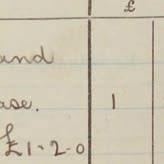 £
and
ase. 1
£1-2-0